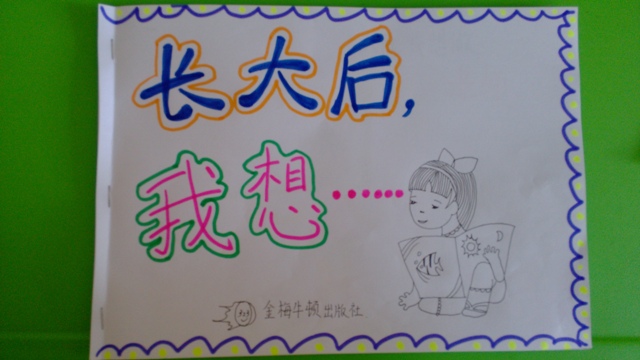 长大后,
我想……
金梅牛顿出版社